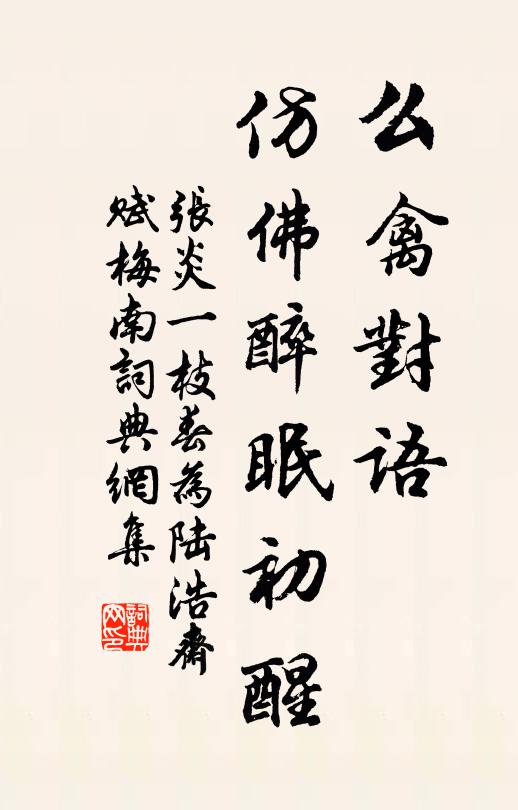 么禽對語
仿佛醉眠初醒
張炎一枝春為陸浩齋
賦梅南詞典網集
詞典網印